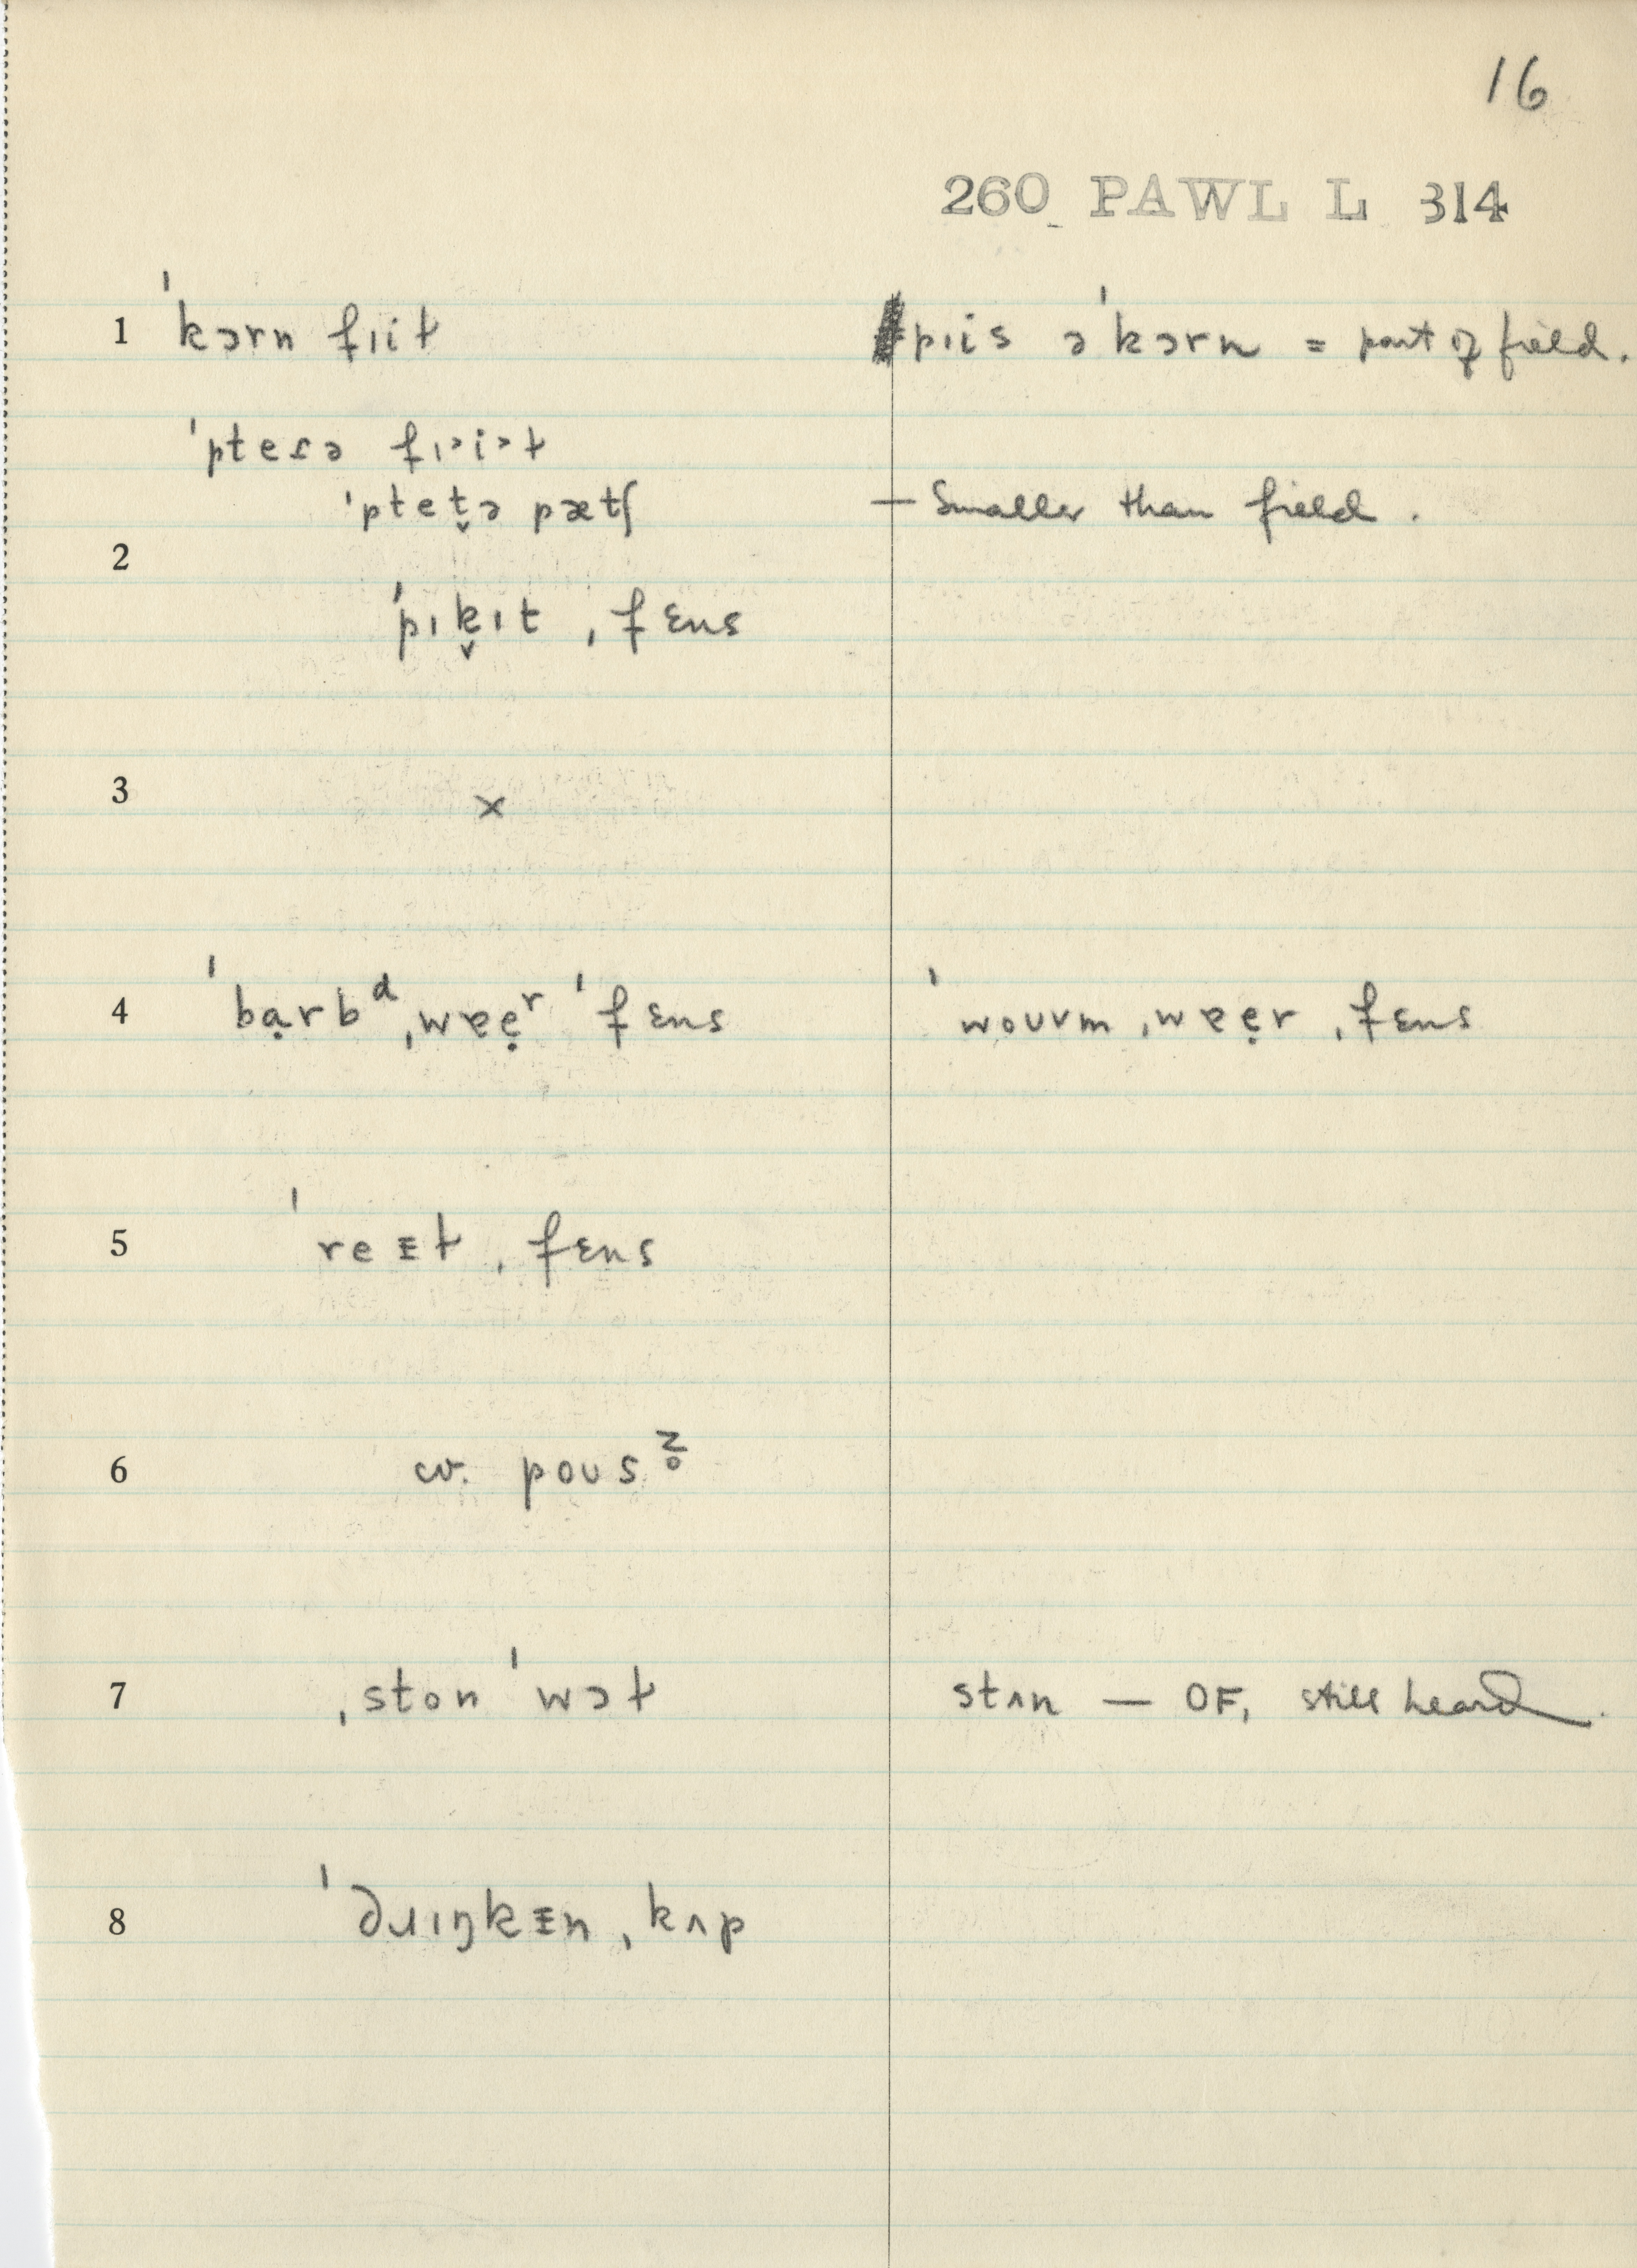 16
260 PAWL L 314
1 ˈkɔrn fɪiɫ pɪis ə ˈkɔrn = part of field.
ˈpteɾə fɪ˃i˃ɫ
ˈptet̬ə pætʃ — Smaller than field.
2
ˈpɪk̬ɪt ˌfɛns
3 ×
4 ˈbɑ̣rbᵈ ˌwɐẹʳ ˈfɛns ˈwoʊvm ˌwɐẹr ˌfɛns
5 ˈreᵻɫ ˌfɛns
6 cv. poʊsz̥
7 ˌston ˈwɔɫ stʌn — OF, still heard.
8 ˈdɹɪŋkᵻn ˌkʌp